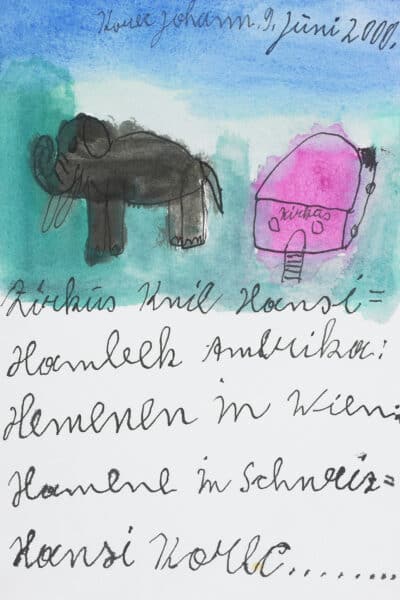 Korec Johann. 9. Juni 2000.
Zirkus
Zirkus Knil Hansi=
Hambek Ambrika:
Hemenen in Wien:
Hamene in Schweiz=
Hansi Korec.........